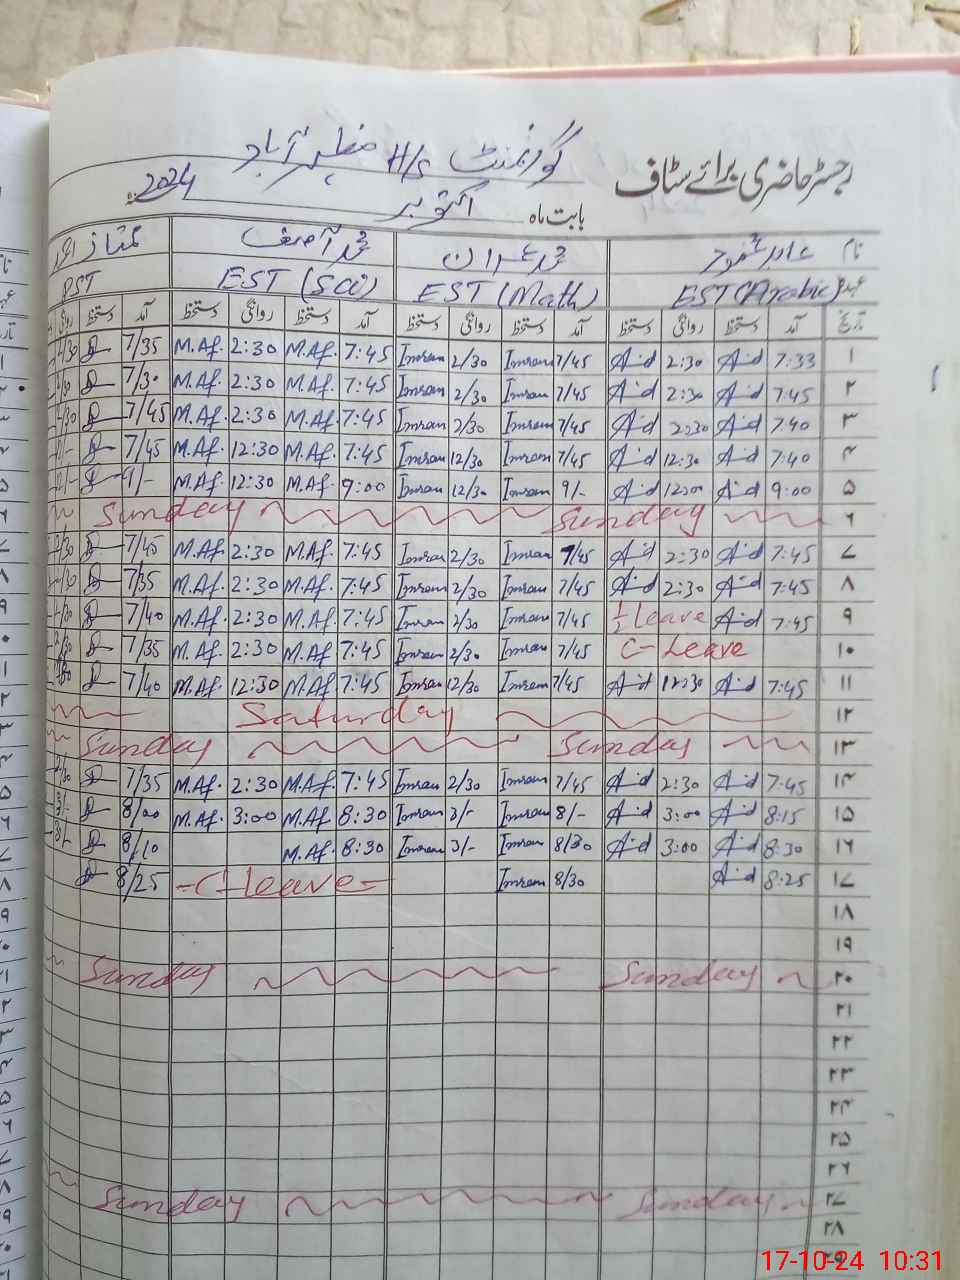 گورنمنٹ H/S مظہر آباد
رجسٹر حاضری برائے سٹاف
بابت ماہ اکتوبر 2024ء
نام محمد عمران محمد آصف ممتاز احمد
عہدہ EST (Arabic) EST (Math) EST (Sci) PST
تاریخ آمد دستخط روانگی دستخط آمد دستخط روانگی دستخط آمد دستخط روانگی دستخط آمد دستخط روانگی
۱ 7:33 Aid 2:30 Aid 7/45 Imran 2/30 Imran 7:45 M.Af. 2:30 M.Af. 7/35
۲ 7:45 Aid 2:30 Aid 7/45 Imran 2/30 Imran 7:45 M.Af. 2:30 M.Af. 7/30
۳ 7:40 Aid 2:30 Aid 7/45 Imran 2/30 Imran 7:45 M.Af. 2:30 M.Af. 7/45
۴ 7:40 Aid 12:30 Aid 7/45 Imran 12/30 Imran 7:45 M.Af. 12:30 M.Af. 7/45
۵ 9:00 Aid 12:00 Aid 9/- Imran 12/30 Imran 9:00 M.Af. 12:30 M.Af. 9/-
۶ Sunday Sunday
۷ 7:45 Aid 2:30 Aid 7/45 Imran 2/30 Imran 7:45 M.Af. 2:30 M.Af. 7/45
۸ 7:45 Aid 2:30 Aid 7/45 Imran 2/30 Imran 7:45 M.Af. 2:30 M.Af. 7/35
۹ 7:45 Aid ½ Leave 7/45 Imran 2/30 Imran 7:45 M.Af. 2:30 M.Af. 7/40
۱۰ C-Leave 7/45 Imran 2/30 Imran 7:45 M.Af. 2:30 M.Af. 7/35
۱۱ 7:45 Aid 12:30 Aid 7/45 Imran 12/30 Imran 7:45 M.Af. 12:30 M.Af. 7/40
۱۲ Saturday
۱۳ Sunday Sunday
۱۴ 7:45 Aid 2:30 Aid 7/45 Imran 2/30 Imran 7:45 M.Af. 2:30 M.Af. 7/35
۱۵ 8:15 Aid 3:00 Aid 8/- Imran 3/- Imran 8:30 M.Af. 3:00 M.Af. 8/00
۱۶ 8:30 Aid 3:00 Aid 8/30 Imran 3/- Imran 8:30 M.Af. 8/10
۱۷ 8:25 Aid 8/30 Imran -C-Leave- 8/25
۱۸
۱۹
۲۰ Sunday Sunday
۲۱
۲۲
۲۳
۲۴
۲۵
۲۶
۲۷ Sunday Sunday
۲۸
۲۹
17-10-24 10:31